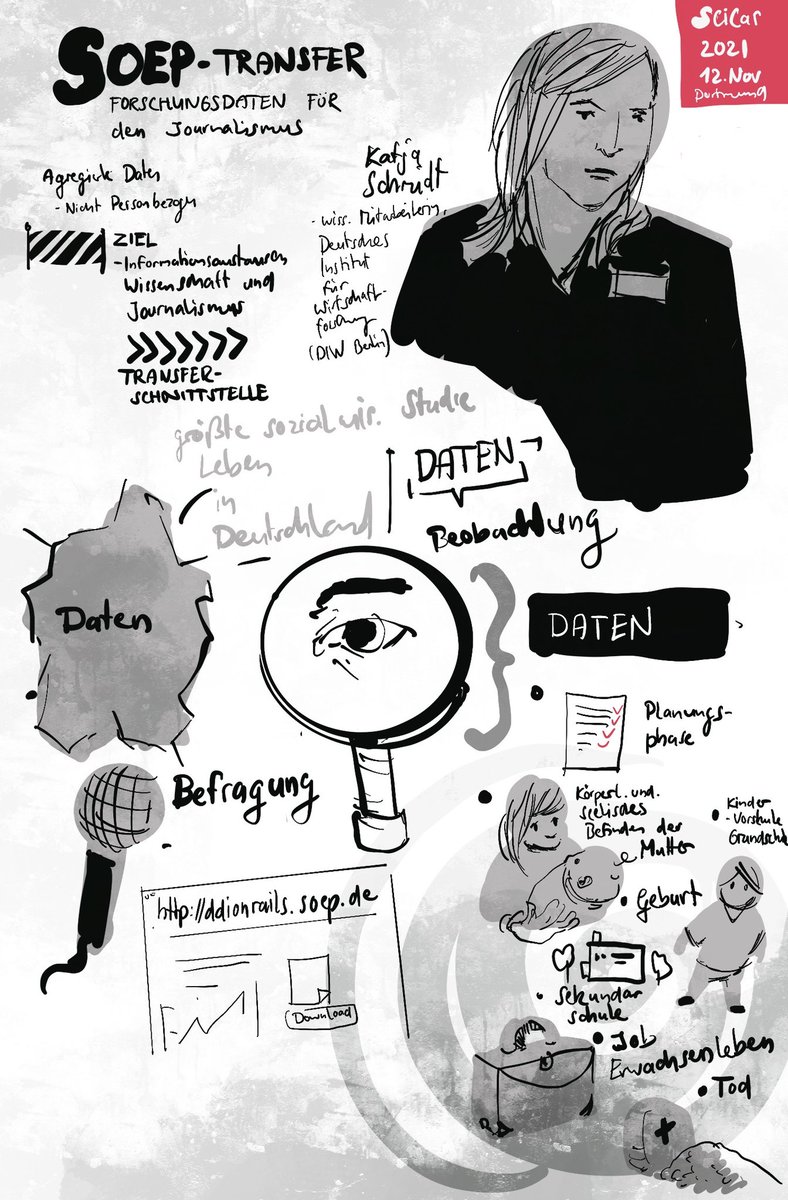 SOEP-TRANSFER
FORSCHUNGSDATEN FÜR
den Journalismus
SciCar
2021
12. Nov
Dortmund
Agregierte Daten
- Nicht Personbezogen
ZIEL
- Informationsaustausch
Wissenschaft und
Journalismus
TRANSFER-
SCHNITTSTELLE
Katja
Schmidt
- wiss. Mitarbeiterin,
Deutsches
Institut
für
Wirtschaft-
forschung
(DIW Berlin)
größte sozialwis. Studie
Leben
in
Deutschland
DATEN
Beobachtung
Daten
DATEN
Planungs-
phase
Befragung
Körperl. und
seelisches
Befinden der
Mutter
Kinder
- Vorschule
Grundschule
Geburt
http://ddionrails.soep.de
Download
Sekundar
schule
Job
Erwachsenleben
Tod